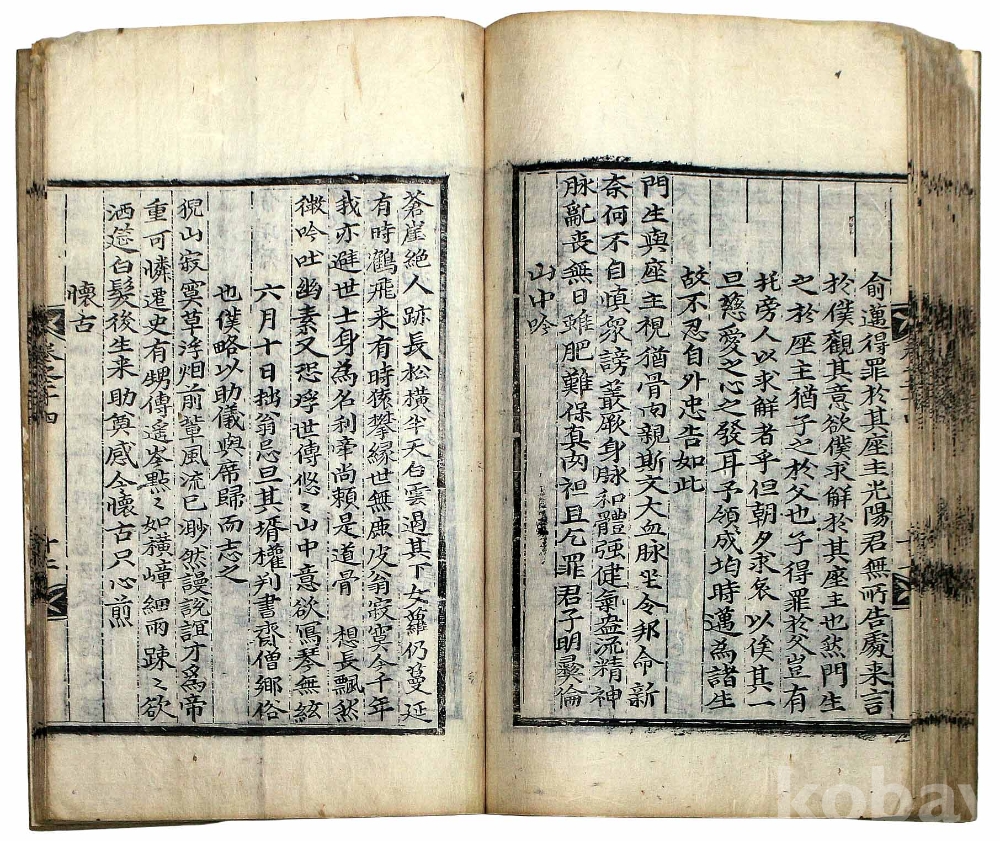 俞邁得罪於其座主光陽君無所告處来言
於僕觀其意欲僕求解於其座主也然門生
之於座主猶子之於父也子得罪於父豈有
托旁人以求解者乎但朝夕求哀以俟其一
旦慈愛之心之發耳予領成均時邁為諸生
故不忍自外忠告如此
門生與座主視猶骨肉親斯文大血脉坐令邦命新
奈何不自慎衆謗叢厥身脉和體强健氣盎流精神
脉亂喪無日雖肥難保真肉袒且乞罪君子明彜倫
山中吟
蒼崖絶人跡長松横半天白雲過其下女蘿仍蔓延
有時鶴飛来有時猿攀緣世無鹿皮翁寂寞今千年
我亦避世士身為名利牽尚頼是道骨 想長飄然
微吟吐幽素又恐浮世傳悠〻山中意欲寫琴無絃
六月十日拙翁忌旦其壻權判書齋僧鄉俗
也僕略以助儀與席歸而志之
猊山寂寞草浮烟前軰風流已渺然謾說誼才爲帝
重可憐遷史有甥傳遙岑點〻如横嶂細雨踈〻欲
洒筵白髮後生来助奠感今懷古只心煎
懷古
卷之十四
十二
kobay